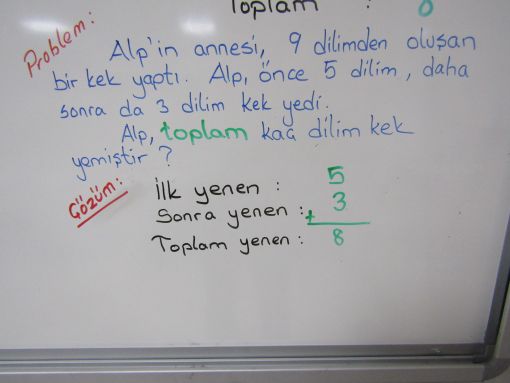 Toplam :
Problem:
Alp'in annesi, 9 dilimden oluşan
bir kek yaptı. Alp, önce 5 dilim, daha
sonra da 3 dilim kek yedi.
Alp, toplam kaç dilim kek
yemiştir?
Çözüm:
İlk yenen : 5
Sonra yenen : + 3
Toplam yenen : 8